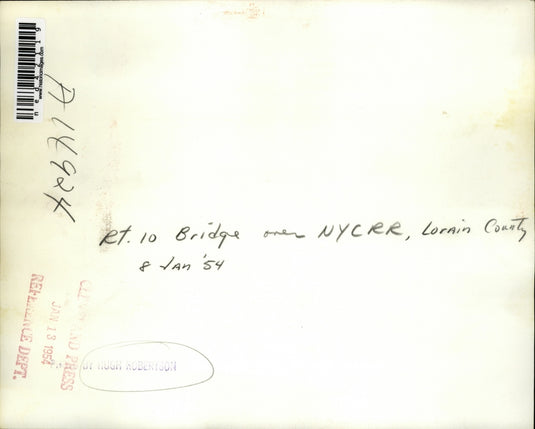 A 14924
Rt. 10 Bridge over NYCRR, Lorain County
8 Jan '54
CLEVELAND PRESS
JAN 13 1954
REFERENCE DEPT.
BY HUGH ROBERTSON